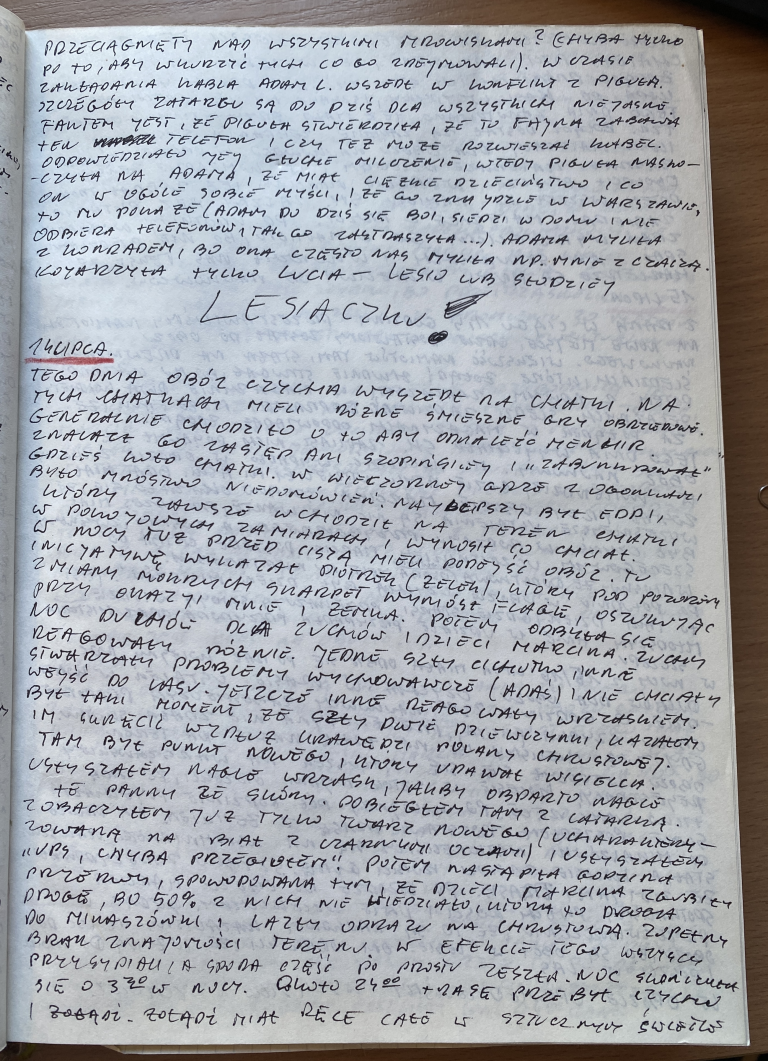 PRZECIĄGNIĘTY NAD WSZYSTKIMI MROWISKAMI? (CHYBA TYLKO
PO TO, ABY WKURZYĆ TYCH CO GO ZDEJMOWALI). W CZASIE
ZAKŁADANIA KABLA ADAM L. WSZEDŁ W KONFLIKT Z PIGUŁĄ.
SZCZEGÓŁY ZATARGU SĄ DO DZIŚ DLA WSZYSTKICH NIEJASNE
FAKTEM JEST, ŻE PIGUŁA STWIERDZIŁA, ŻE TO FAJNA ZABAWA
TEN TELEFON I CZY TEŻ MOŻE ROZWIESZAĆ KABEL.
ODPOWIEDZIAŁO JEJ GŁUCHE MILCZENIE, WTEDY PIGUŁA NASKO-
-CZYŁA NA ADAMA, ŻE MIAŁ CIĘŻKIE DZIECIŃSTWO I CO
ON W OGÓLE SOBIE MYŚLI, I ŻE GO ZNAJDZIE W WARSZAWIE,
TO MU POKAŻE (ADAM DO DZIŚ SIĘ BOI, SIEDZI W DOMU I NIE
ODBIERA TELEFONÓW, TAK GO ZASTRASZYŁA...). ADAMA MYLIŁA
Z KONRADEM, BO ONA CZĘSTO NAS MYLIŁA NP. MNIE Z CZACZĄ.
KOJARZYŁA TYLKO LUCIA – LESIO LUB SŁODZIEJ
LESIACZKU!
14 LIPCA.
TEGO DNIA OBÓZ CZYCHA WYSZEDŁ NA CHATKI. NA
TYCH CHATKACH MIELI RÓŻNE ŚMIESZNE GRY OBRZĘDOWE.
GENERALNIE CHODZIŁO O TO ABY ODNALEŹĆ MENHIR.
ZNALAZŁ GO ZASTĘP ANI SZOPIŃSKIEJ I „ZABUNKROWAŁ"
GDZIEŚ KOŁO CHATKI. W WIECZORNEJ GRZE Z OGONKAMI
BYŁO MNÓSTWO NIEDOMÓWIEŃ. NAJLEPSZY BYŁ EDDI,
KTÓRY ZAWSZE WCHODZIŁ NA TEREN CHATKI
W POKOJOWYCH ZAMIARACH I WYNOSIŁ CO CHCIAŁ.
W NOCY TUŻ PRZED CISZĄ MIELI PODEJŚĆ OBÓZ. TU
INICJATYWĘ WYKAZAŁ PIOTREK (ZELEK), KTÓRY POD POZOREM
ZMIANY MOKRYCH SKARPET WYNIÓSŁ FLAGĘ, OSZUKUJĄC
PRZY OKAZJI MNIE I ZEMKA. POTEM ODBYŁA SIĘ
NOC DUCHÓW DLA ZUCHÓW I DZIECI MARCINA. ZUCHY
REAGOWAŁY RÓŻNIE. JEDNE SZŁY CICHUTKO, INNE
STWARZAŁY PROBLEMY WYCHOWAWCZE (ADAŚ) I NIE CHCIAŁY
WEJŚĆ DO LASU. JESZCZE INNE REAGOWAŁY WRZASKIEM.
BYŁ TAKI MOMENT, ŻE SZŁY DWIE DZIEWCZYNKI, KAZAŁEM
IM SKRĘCIĆ WZDŁUŻ KRAWĘDZI POLANY CHRUSTOWEJ.
TAM BYŁ PUNKT NOWEGO, KTÓRY UDAWAŁ WISIELCA.
USŁYSZAŁEM NAGLE WRZASK, JAKBY OBDARTO NAGLE
TE PANNY ZE SKÓRY. DOBIEGŁEM TAM Z LATARKĄ.
ZOBACZYŁEM JUŻ TYLKO TWARZ NOWEGO (UCHARAKTERY-
ZOWANĄ NA BIAŁ Z CZARNYMI OCZAMI) I USŁYSZAŁEM
„UPS, CHYBA PRZEGIĄŁEM"! POTEM NASTĄPIŁA GODZINA
PRZERWY, SPOWODOWANA TYM, ŻE DZIECI MARCINA ZGUBIŁY
DROGĘ, BO 50% Z NICH NIE WIEDZIAŁO, KTÓRA TO DROGA
DO MIKASZÓWKI, I LAZŁY ODRAZU NA CHRUSTOWĄ. ZUPEŁNY
BRAK ZNAJOMOŚCI TERENU. W EFEKCIE TEGO WSZYSCY
PRZYSYPIALI, A SPORA CZĘŚĆ PO PROSTU ZESZŁA. NOC SKOŃCZYŁA
SIĘ O 3 30 W NOCY. OKOŁO 24 00 TRASĘ PRZEBYŁ CZYCHU
I ŻOŁĄDŹ. ŻOŁĄDŹ MIAŁ RĘCE CAŁE W SZTUCZNYM ŚWIETLE